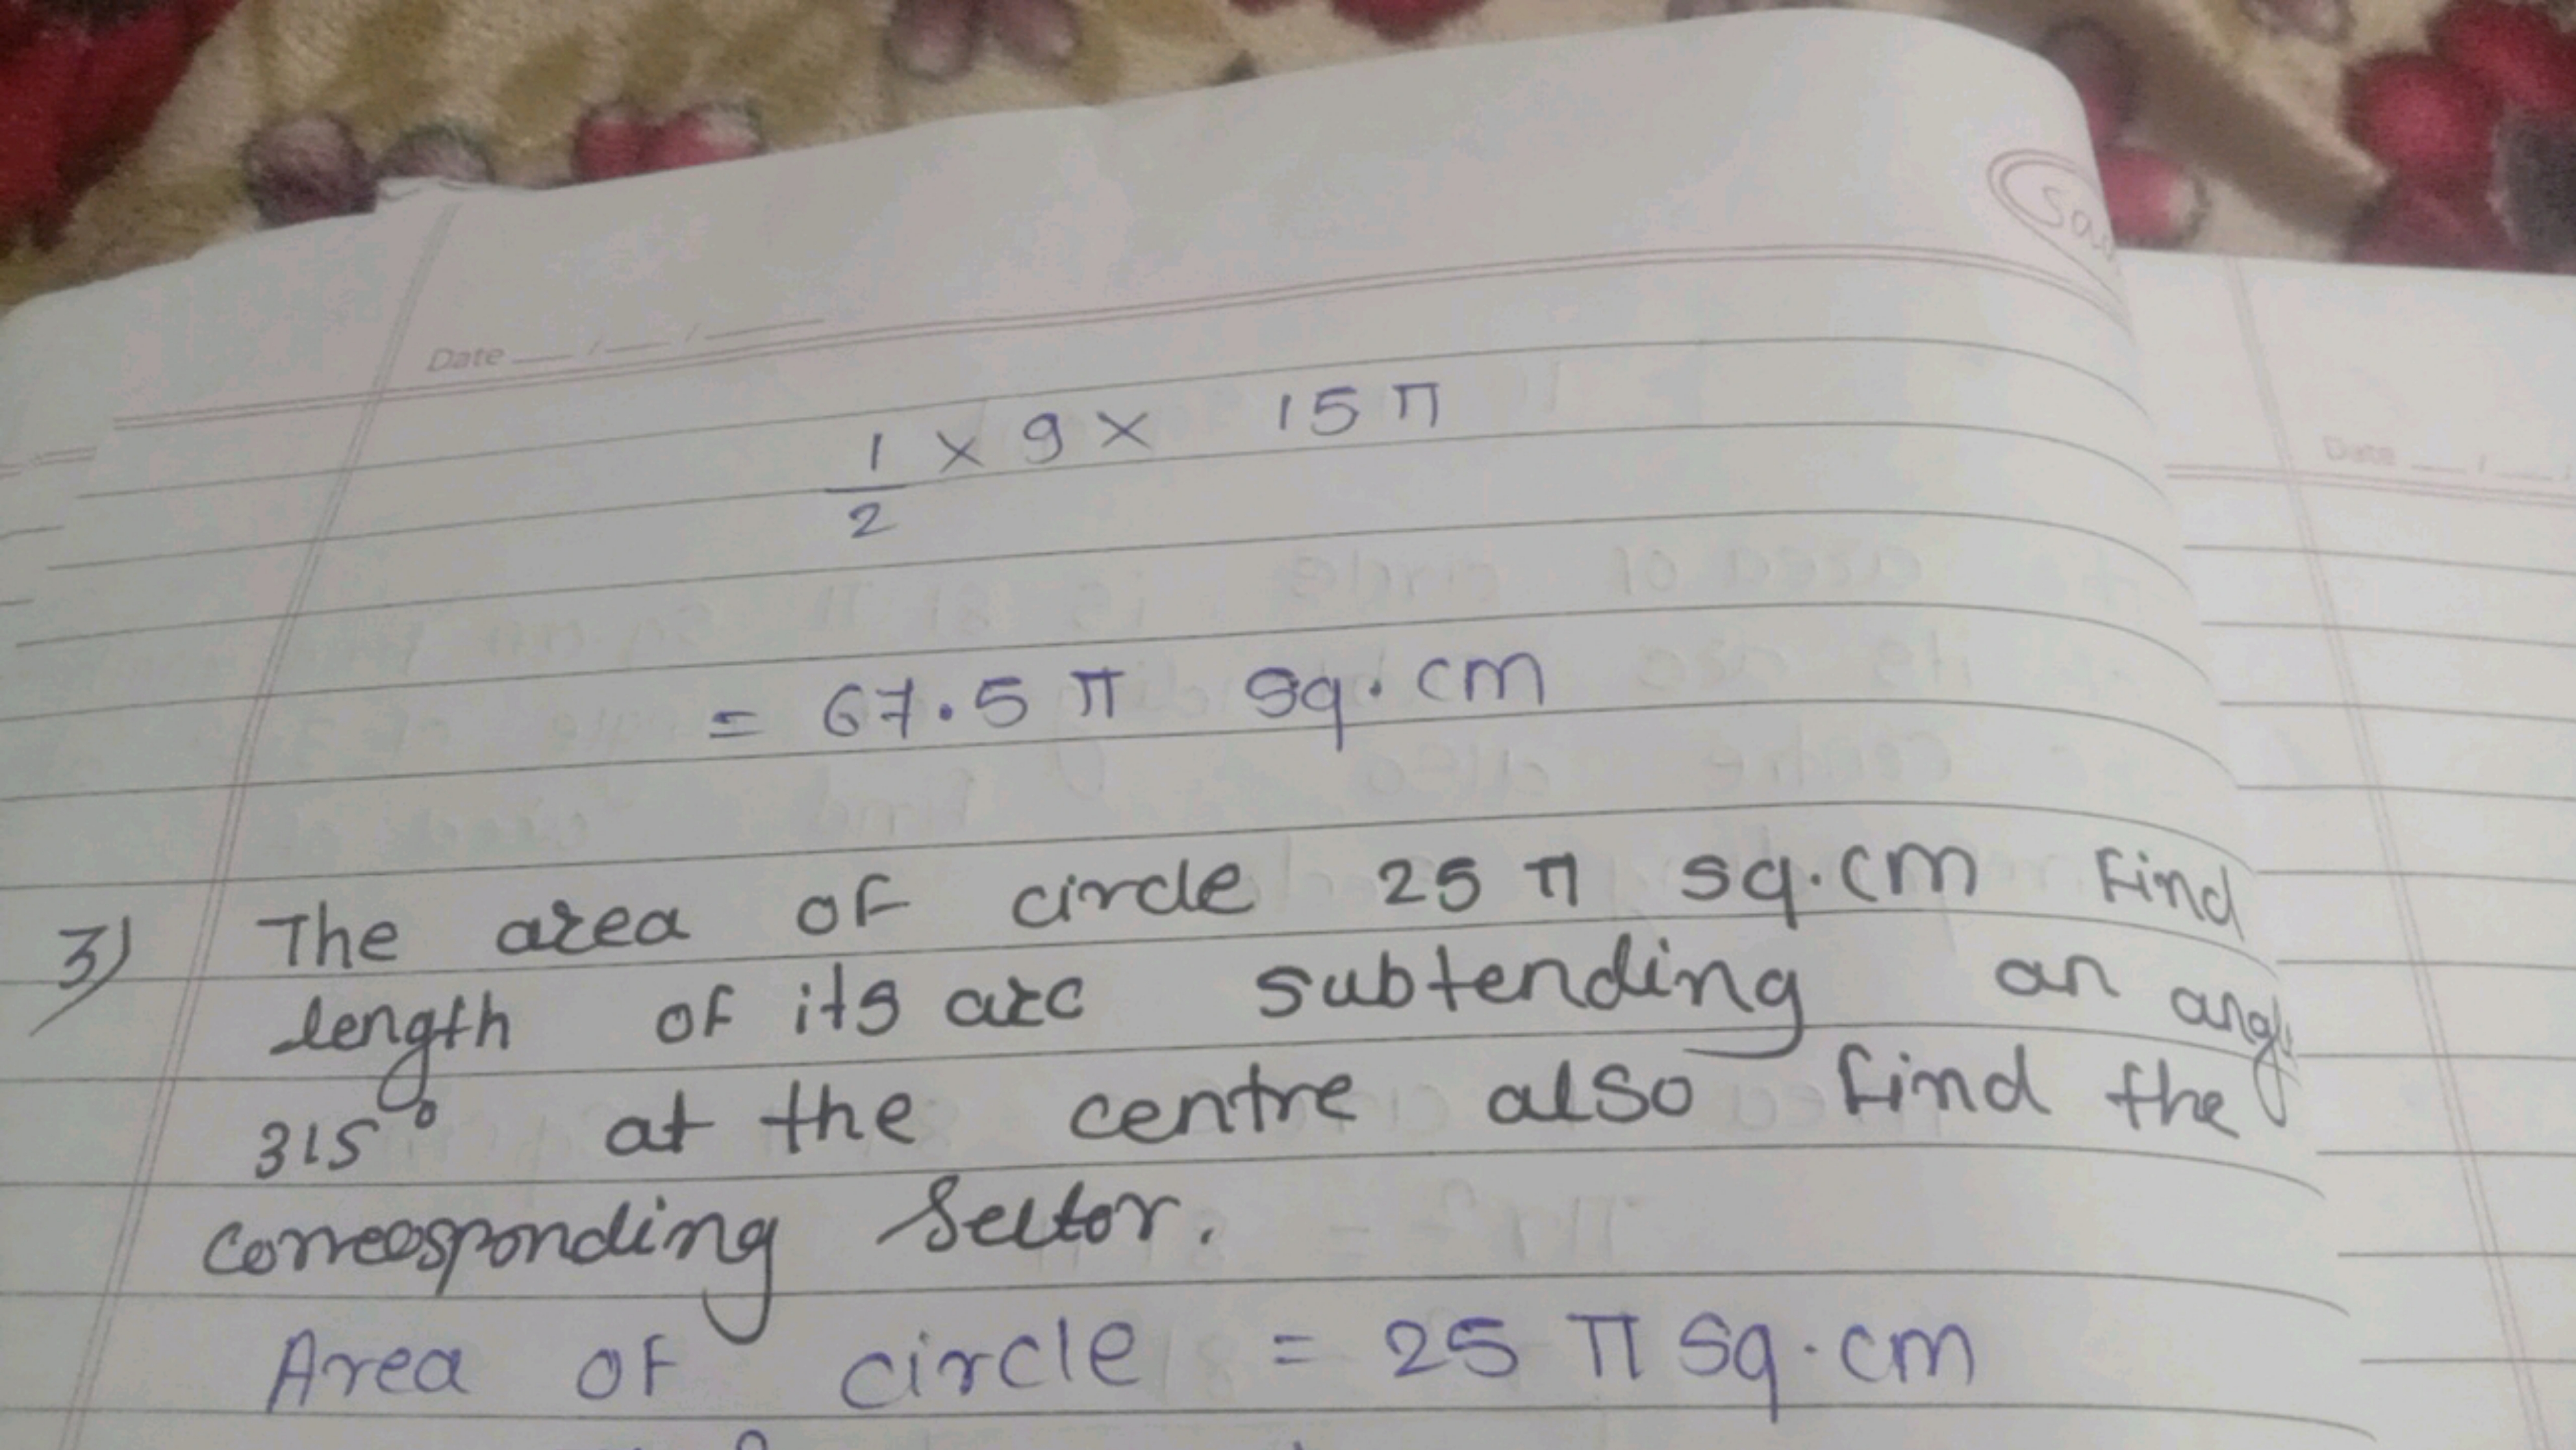 Date __/__/____
1/2 × 9 × 15 π
= 67.5 π sq. cm
3) The area of circle 25 π sq.cm Find
length of its arc subtending an angle
315° at the centre also find the
correesponding Sector.
Area of circle = 25 π sq.cm
Date